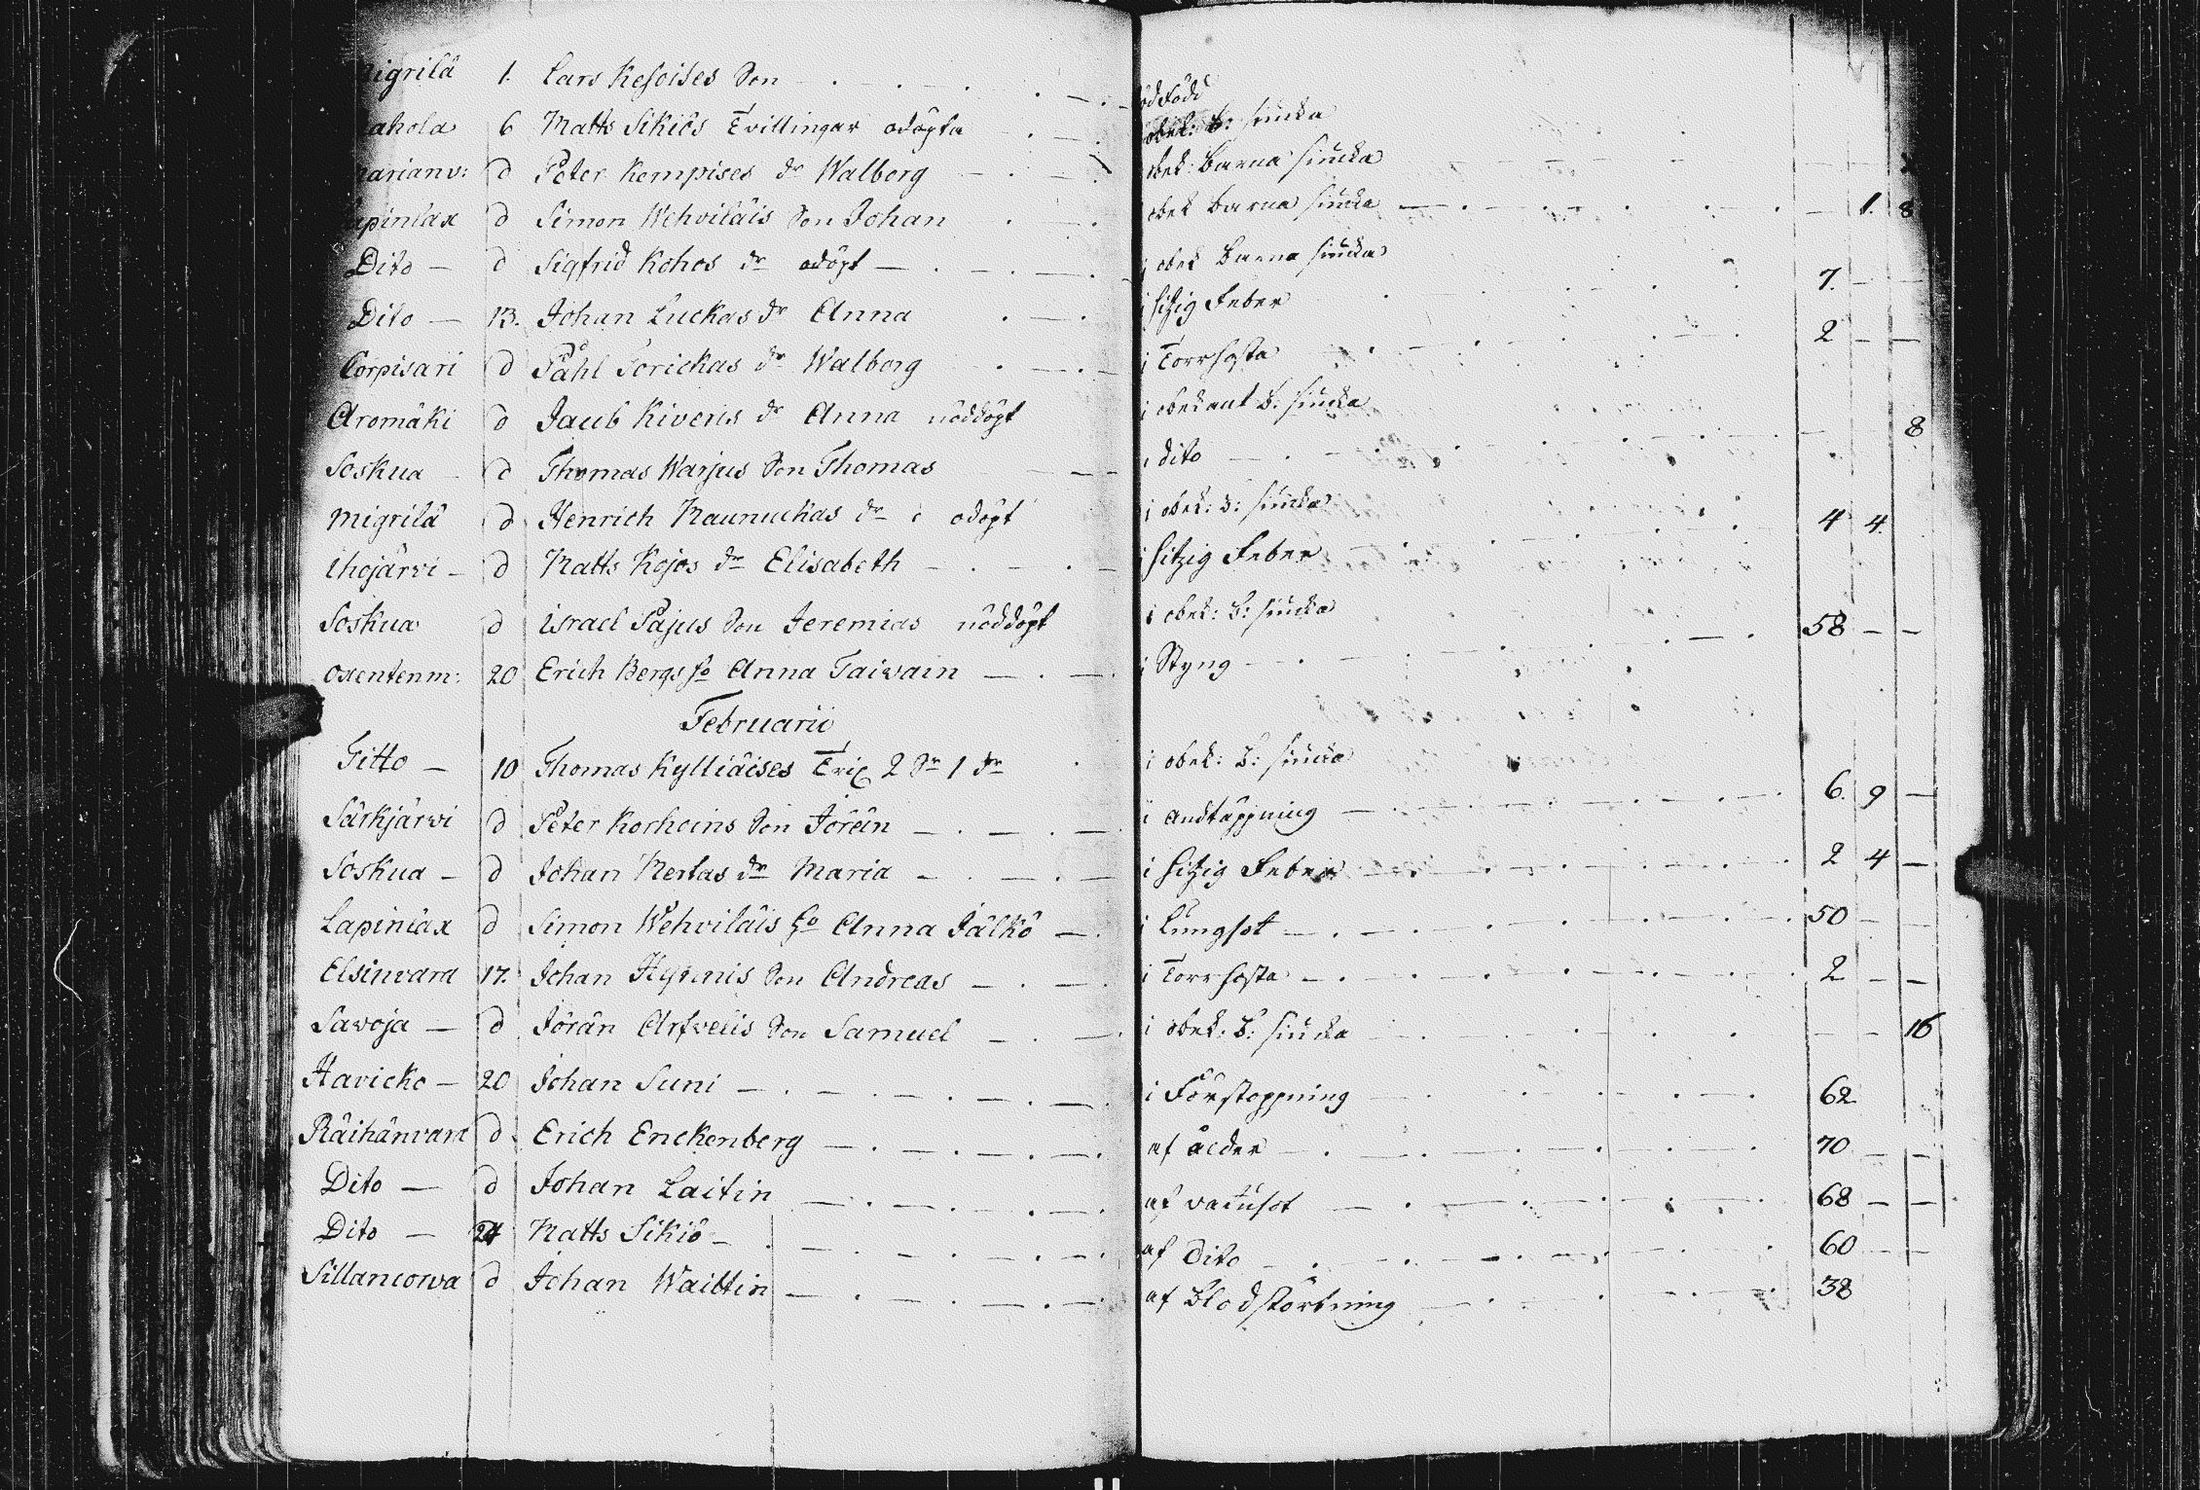 igrilä 1. Lars Kesoises Son ödfödd
ahola 6 Matts Sikiös Tvillingar odöpta obek: B: siucka
arianv: d Peter Kempises dr Walborg obek: Barna siucka
apinlax d Simon Wehviläis Son Johan obek barna siucka 1. 8
Dito d Sigfrid Kohos dr odöpt i obek Barna siucka
Dito 13. Johan Luckas dr Anna i hitzig Feber 7.
Corpisari d Påhl Sorickas dr Walborg i Torrhosta 2
Aromäki d Jacob Kiveris dr Anna nöddöpt i obekant B: siucka
Soskua d Thomas Warjus Son Thomas i dito 8
Migrilä d Henrich Mauniuckas dr odöpt i obek: B: siucka
ihojärvi d Matts Kojos dr Elisabeth i hitzig Feber 4 4.
Soskua d Israel Pajus Son Jeremias nöddöpt i obek: B: siucka
oxentenm: 20 Erich Bergs ho Anna Taivain i Styng 58
Februarii
Titto 10 Thomas Kylliäises Tri 2 Sr 1 dr i obek: B: siucka
Särkjärvi d Peter Korhoins Son Jörän i andtäppning 6. 9
Soskua d Johan Mertas dr Maria i hitzig Feber 2 4
Lapinlax d Simon Wehviläis ho Anna Jälkö i Lungsot 50
Elsinvara 17. Johan Hyvenis Son Andreas i Torrhosta 2
Savoja d Jörän Arfvelis Son Samuel i obek: B: siucka 16
Havicko 20 Johan Suni i Förstoppning 62
Räihänvara d Erich Enckenberg af ålder 70
Dito d Johan Laitin af vatusot 68
Dito 24 Matts Sikiö af Dito 60
Sillancorva d Johan Waittin af Blodstörtning 38